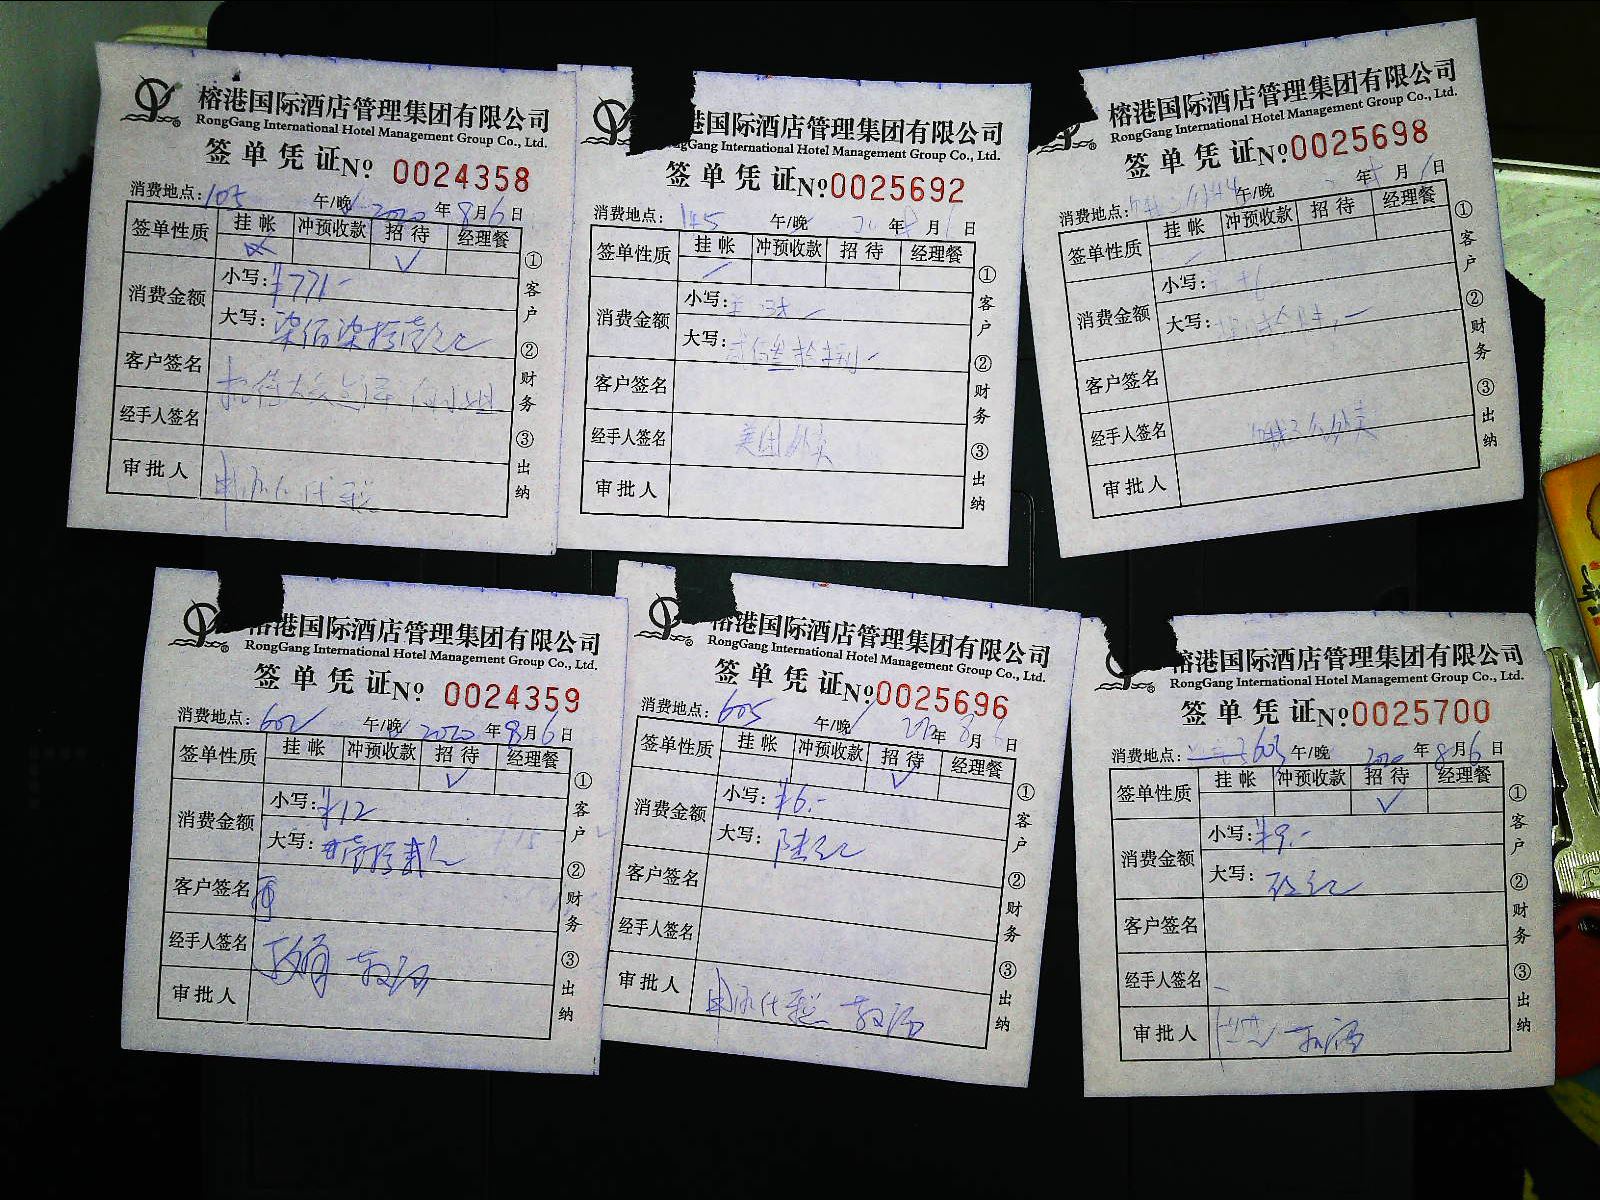 榕港国际酒店管理集团有限公司
RongGang International Hotel Management Group Co., Ltd.
签单凭证 No 0024358
消费地点: 105 午/晚 2020 年 8 月 6 日
签单性质 挂帐 冲预收款 招待 经理餐
消费金额 小写: ¥771-
大写: 柒佰柒拾壹元
客户签名
经手人签名
审批人
①客户 ②财务 ③出纳
港国际酒店管理集团有限公司
International Hotel Management Group Co., Ltd.
签单凭证 No 0025692
消费地点: 145 午/晚 年 8 月 日
签单性质 挂帐 冲预收款 招待 经理餐
消费金额 小写:
大写:
客户签名
经手人签名 美团外卖
审批人
①客户 ②财务 ③出纳
榕港国际酒店管理集团有限公司
RongGang International Hotel Management Group Co., Ltd.
签单凭证 No 0025698
消费地点: 午/晚 年 月 日
签单性质 挂帐 冲预收款 招待 经理餐
消费金额 小写:
大写:
客户签名
经手人签名 外卖
审批人
①客户 ②财务 ③出纳
榕港国际酒店管理集团有限公司
RongGang International Hotel Management Group Co., Ltd.
签单凭证 No 0024359
消费地点: 602 午/晚 2020 年 8 月 6 日
签单性质 挂帐 冲预收款 招待 经理餐
消费金额 小写: ¥12
大写: 壹拾贰元
客户签名
经手人签名
审批人
①客户 ②财务 ③出纳
榕港国际酒店管理集团有限公司
RongGang International Hotel Management Group Co., Ltd.
签单凭证 No 0025696
消费地点: 605 午/晚 2020 年 8 月 6 日
签单性质 挂帐 冲预收款 招待 经理餐
消费金额 小写: ¥6.-
大写: 陆元
客户签名
经手人签名
审批人
①客户 ②财务 ③出纳
榕港国际酒店管理集团有限公司
RongGang International Hotel Management Group Co., Ltd.
签单凭证 No 0025700
消费地点: 603 午/晚 2020 年 8 月 6 日
签单性质 挂帐 冲预收款 招待 经理餐
消费金额 小写: ¥9.-
大写: 玖元
客户签名
经手人签名
审批人
①客户 ②财务 ③出纳